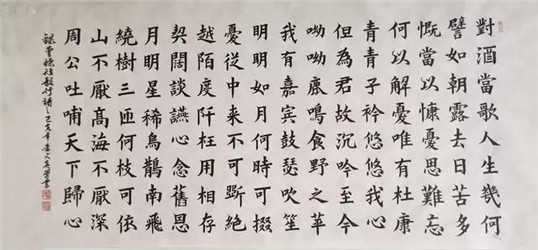 對酒當歌人生幾何
譬如朝露去日苦多
慨當以慷憂思難忘
何以解憂唯有杜康
青青子衿悠悠我心
但為君故沉吟至今
呦呦鹿鳴食野之苹
我有嘉賓鼓瑟吹笙
明明如月何時可掇
憂從中来不可斷絕
越陌度阡枉用相存
契闊談讌心念舊恩
月明星稀烏鵲南飛
繞樹三匝何枝可依
山不厭高海不厭深
周公吐哺天下歸心
錄曹操短歌行詩 己亥年 書